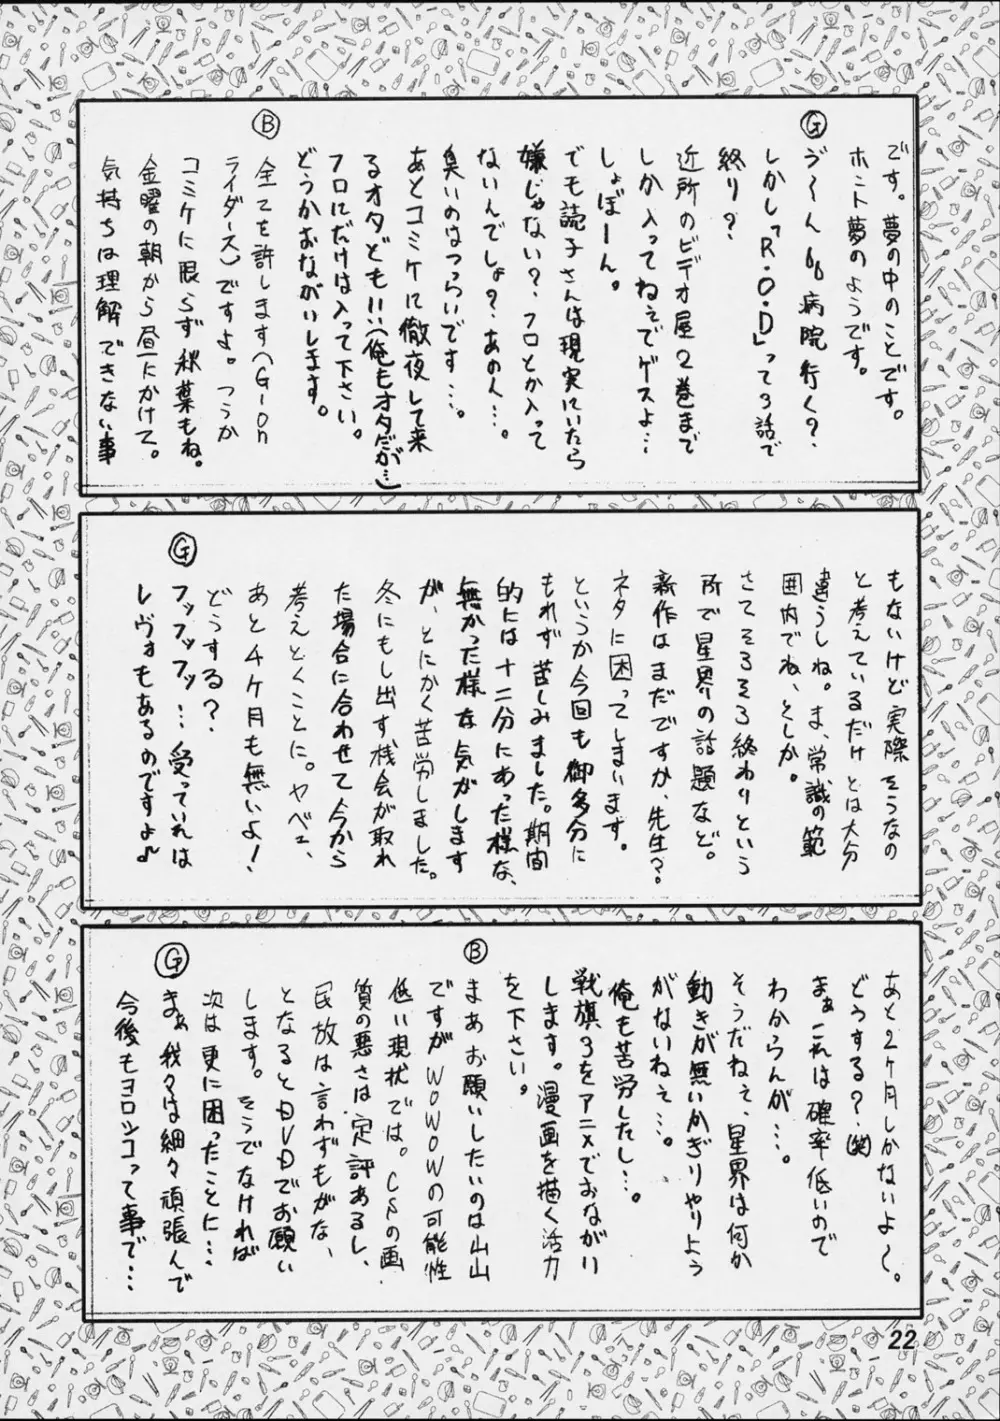 です。夢の中のことです。
ホント夢のようです。
Ⓖ
う〜ん、病院行く?
しかし「R・O・D」って3話で
終り?
近所のビデオ屋2巻まで
しか入ってねぇでゲスよ…
しょぼーん。
でも読子さんは現実にいたら
嫌じゃない?、フロとか入って
ないんでしょ?、あの人…。
臭いのはつらいです…。
あとコミケに徹夜して来
るオタども!!(俺もオタだが…)
フロにだけは入って下さい。
どうかおながいします。
Ⓑ
全てを許します(G-on
ライダース)ですよ。つうか
コミケに限らず秋葉もね。
金曜の朝から昼にかけて。
気持ちは理解できない事
もないけど実際そうなの
と考えているだけとは大分
違うしね。ま、常識の範
囲内でね、としか。
さてそろそろ終わりという
所で星界の話題など。
新作はまだですか、先生?
ネタに困ってしまいます。
というか今回も御多分に
もれず苦しみました。期間
的には十二分にあった様な、
無かった様な気がします
が、とにかく苦労しました。
冬にもし出す機会が取れ
た場合に合わせて今から
考えとくことに。ヤベェ、
あと4ヶ月も無いよ!
どうする?
Ⓖ
フッフッフッ…受っていれば
レヴォもあるのですよ♪
あと2ヶ月しかないよ〜。
どうする?(笑)
まぁこれは確率低いので
わからんが…。
そうだねぇ、星界は何か
動きが無いかぎりやりよう
がないねぇ…。
俺も苦労したし…。
戦旗3をアニメでおながい
します。漫画を描く活力
を下さい。
Ⓑ
まあお願いしたいのは山山
ですがWOWOWの可能性
低い現状では。CSの画
質の悪さは定評あるし、
民放は言わずもがな、
となるとDVDでお願い
します。そうでなければ
次は更に困ったことに…
Ⓖ
まぁ我々は細々頑張んで
今後もヨロシコって事で…
22